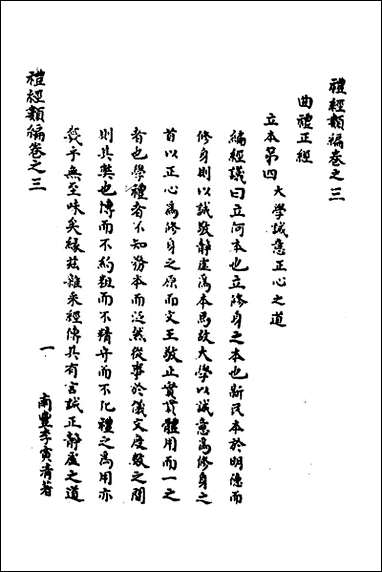 禮經類編卷之三
曲禮正經
立本第四 大學誠意正心之道
編經議曰立何本也立修身之本也新民本於明德而
修身則以誠敬靜虛為本焉故大學以誠意為修身之
首以正心為修身之原而文王敬止實貫體用而一之
者也學禮者不知務本而泛然從事於儀文度數之間
則其弊也博而不約粗而不精守而不化禮之為用亦
幾乎無至味矣緣茲雜采經傳具有言誠正靜虛之道
禮經類編卷之三
一
南豐李黃清著